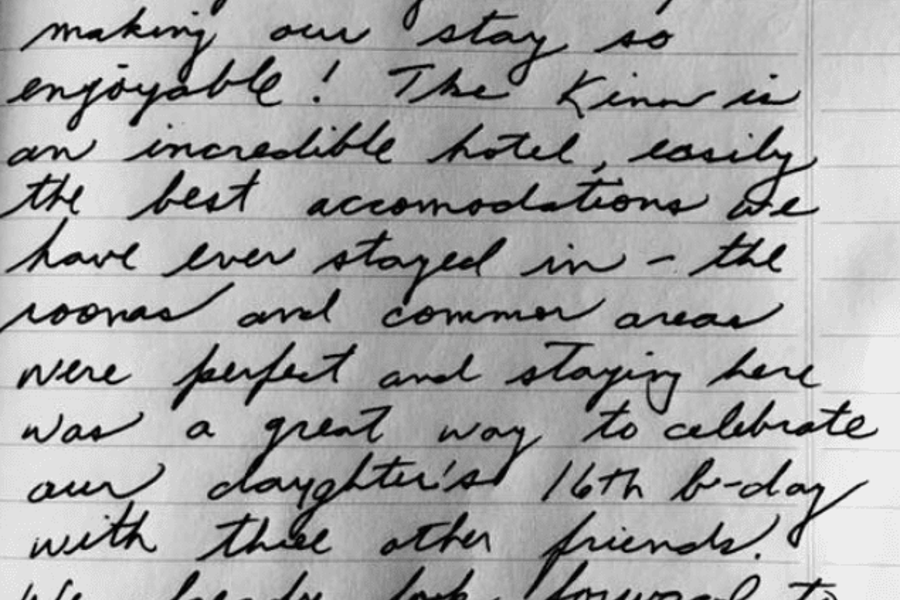 making our stay so
enjoyable! The Kinn is
an incredible hotel, easily
the best accomodations we
have ever stayed in - the
rooms and common areas
were perfect and staying here
was a great way to celebrate
our daughter's 16th b-day
with three other friends.
We look forward to